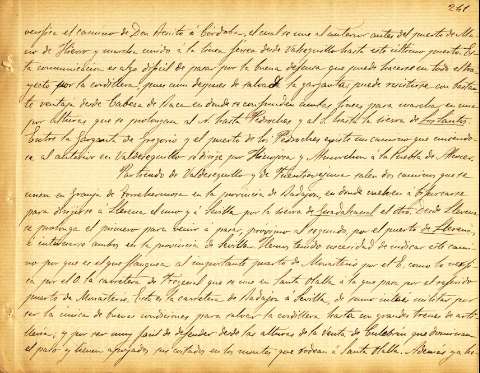 241
verifica el camino de Don Benito á Córdoba, el cual se une al anterior antes del puerto de Ma-
no de Hierro y marcha unido á la linea férrea desde Valsequillo hasta este ultimo puerto. Es-
ta comunicacion es algo dificil de pasar por la buena defensa que puede hacerse en todo el tra-
yecto por la cordillera, pues aun despues de salvada la garganta, puede resistirse con bastan-
te ventaja desde Cabeza de Vaca en donde se confunden ambas lineas para marchar en una
por alturas que se prolongan al N. hasta Pedroches y al S. hasta la sierra de los Santos.
Entre la Garganta de Gregorio y el puerto de los Pedroches existe un camino que uniendo-
se al anterior en Valdesequillo se dirige por Hinojosa y Monterrubio á la Puebla de Alcocer.
Partiendo de Valdesequillo y de Fuenteovejuna salen dos caminos que se
unen en Granja de Torrehermosa en la provincia de Badajoz, en donde vuelven á bifurcarse
para dirigirse á Llerena el uno y á Sevilla por la sierra de Guadalcanal el otro. Desde Llerena
se prolonga el primero para venir á pasar, próximo al segundo, por el puerto de Llerena,
é internarse ambos en la provincia de Sevilla. Hemos tenido necesidad de indicar este cami-
no por que es el que flanquea al importante puerto de Monasterio por el E. como lo verifi-
ca por el O. la carretera de Fregenal que se une en Santa Olalla á la que pasa por el segundo
puerto de Monasterio. Esta es la carretera de Badajoz á Sevilla, de sumo interes militar por
ser la unica de buenas condiciones para salvar la cordillera hasta con grandes trenes de arti-
lleria, y por ser muy facil de defender desde las alturas de la venta de Culebrin que dominan
el paso y tienen apoyados sus costados en los montes que rodean á Santa Olalla. Ademas ya he-